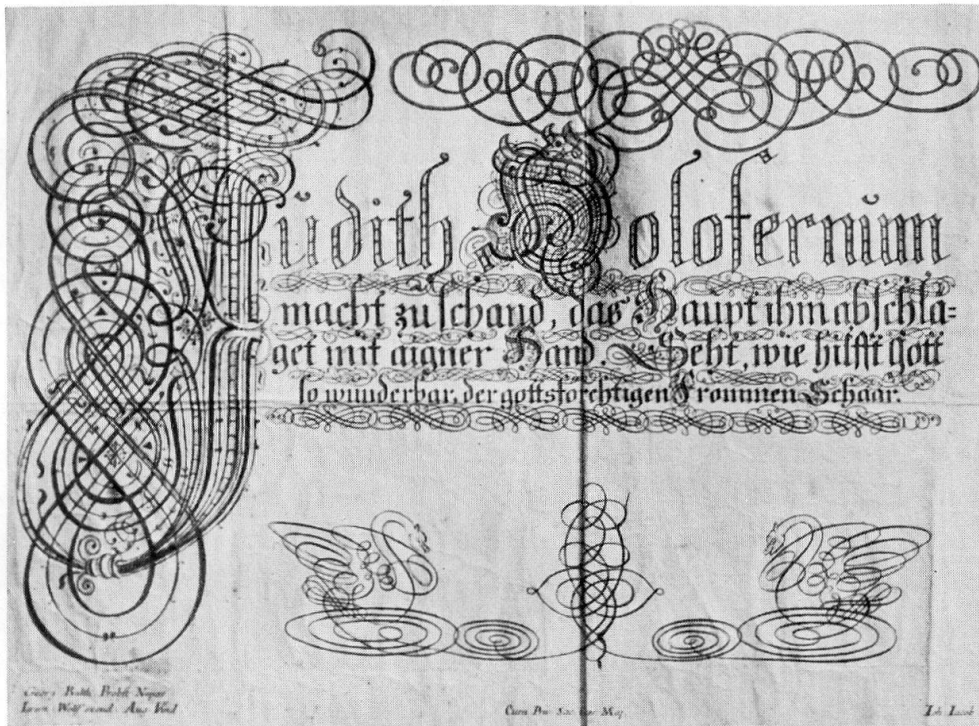 Judith Holofernum
macht zu schand, das Haupt ihm abschlä=
get mit aigner Hand. Seht, wie hilfft Gott
so wunderbar, der gottsforchtigen Frommen Schaar.
Georg Balth. Probst Nepos
Ierem. Wolf exend. Aug. Vind.
Cum Pr. Sac. Caes. Maj.
Ioh. Iacob